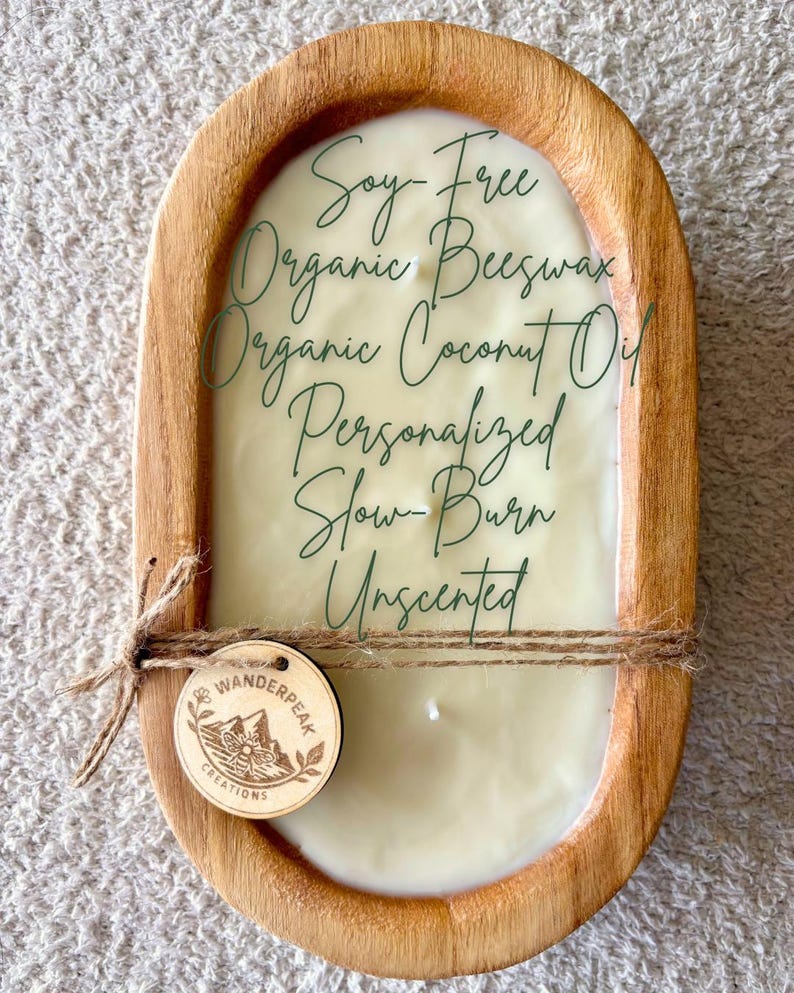 Soy-Free
Organic Beeswax
Organic Coconut Oil
Personalized
Slow-Burn
Unscented
WANDERPEAK
CREATIONS